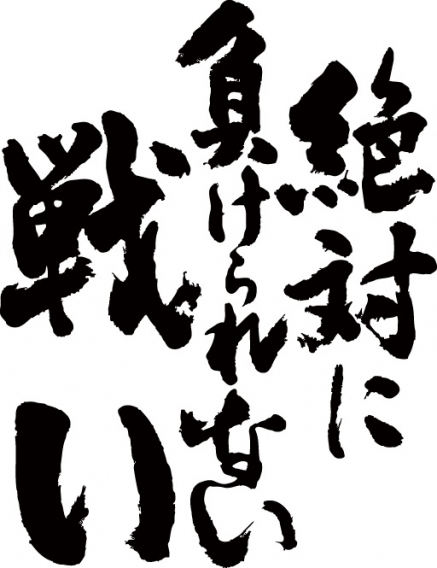 絶対に
負けられない
戦い